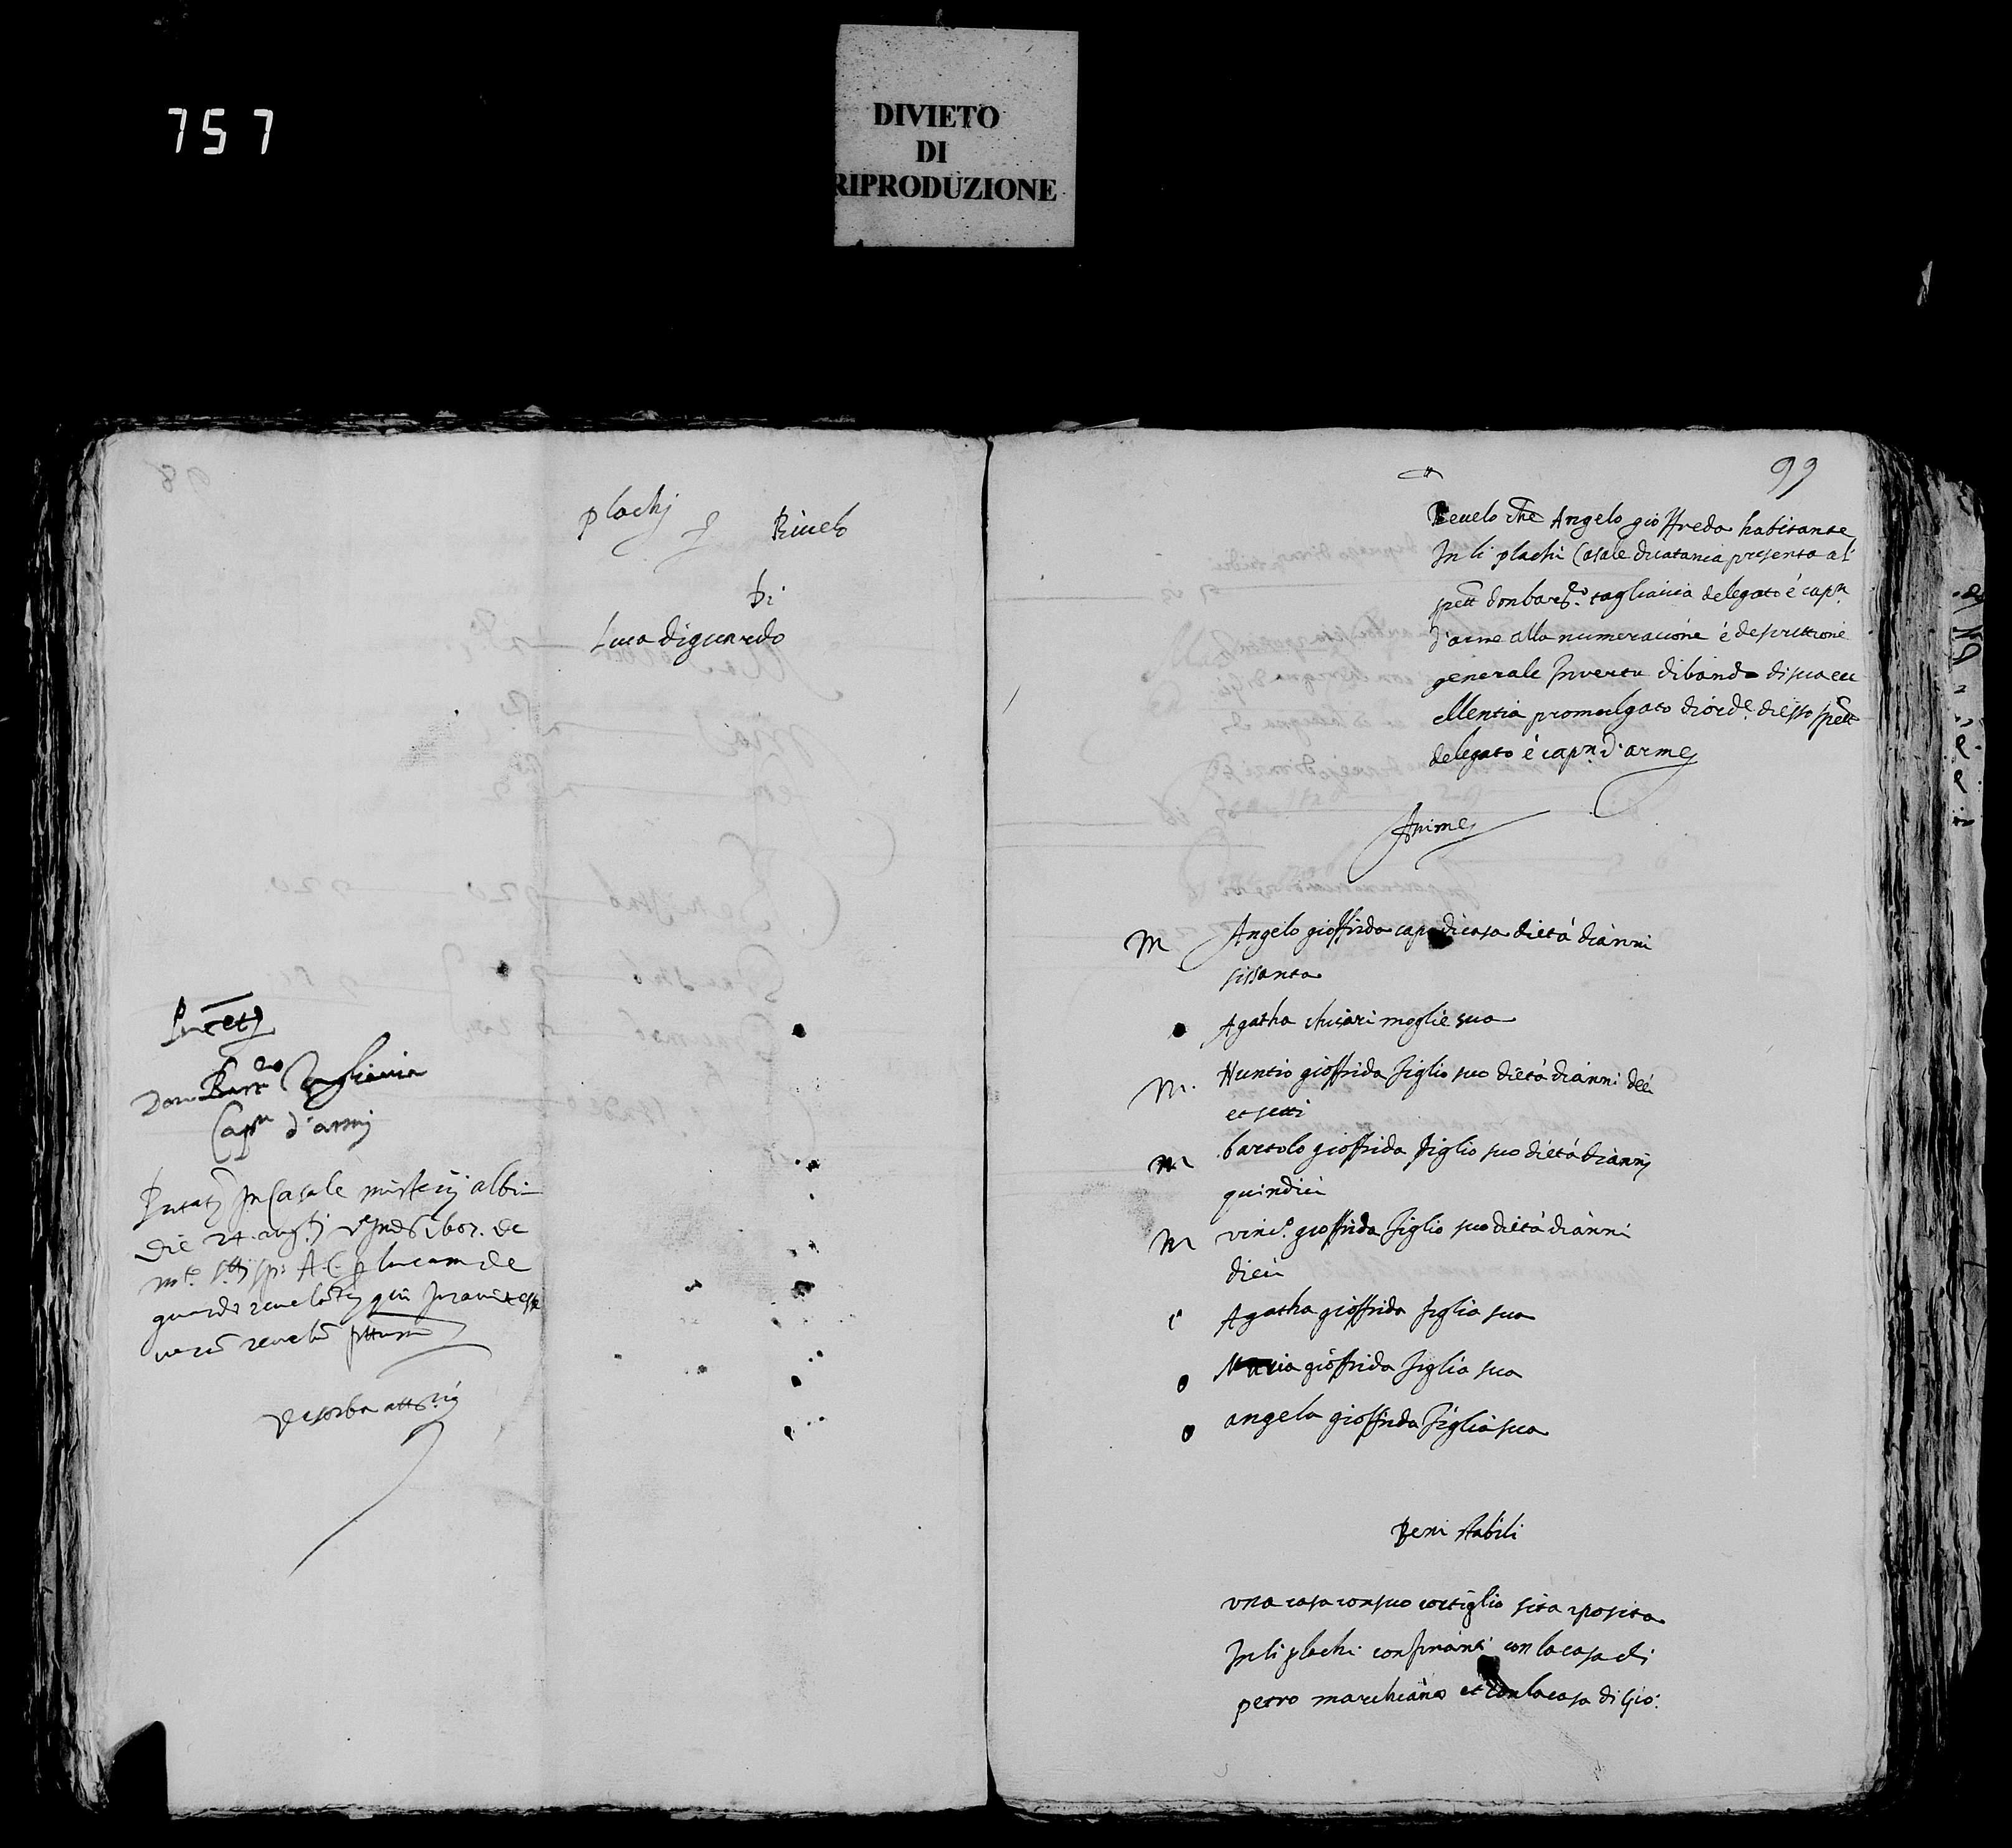 757
DIVIETO
DI
RIPRODUZIONE
plachj
Rivelo
Di
Luca di guardo
Don Barr.eo Tagliavia
Cap.n d'armi
In Casale misterij albi
Die 24 aug.ti
guardo
verū
99
Revelo che Angelo gioffreda habitante
In li plachi Casale di catania presenta al
spett don bart.eo tagliavia delegato é cap.n
d'arme alla numeracione é descrittione
generale In vertu di bando di sua ecc
ellentia promulgato di ord.e di esso spett
delegato é cap.n d'arme
Anime
M Angelo gioffrida capo di casa di età di anni
sissanta
Agatha chisari moglie sua
M. Nuntio gioffrida figlio suo di età di anni deci
et setti
M bartolo gioffrida figlio suo di età di anni
quindici
M vinc.o gioffrida figlio suo di età di anni
dieci
Agatha gioffrida figlia sua
o Maria gioffrida figlia sua
o angela gioffrida figlia sua
Beni stabili
una casa con suo cortiglio sita e posita
In li plachi confinanti con la casa di
petro marchiano et con la casa di Gio: